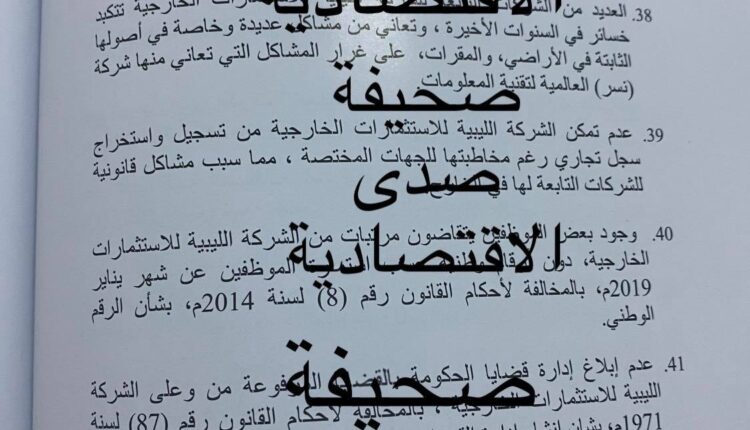 الاقتصادية
38. العديد من الاستثمارات الخارجية تتكبد
خسائر في السنوات الأخيرة ، وتعاني من مشاكل عديدة وخاصة في أصولها
الثابتة في الأراضي، والمقرات، على غرار المشاكل التي تعاني منها شركة
(نسر) العالمية لتقنية المعلومات
صحيفة
39. عدم تمكن الشركة الليبية للاستثمارات الخارجية من تسجيل واستخراج
سجل تجاري رغم مخاطبتها للجهات المختصة ، مما سبب مشاكل قانونية
للشركات التابعة لها في
صدى
40. وجود بعض الموظفين يتقاضون مرتبات من الشركة الليبية للاستثمارات
الخارجية، دون الموظفين عن شهر يناير
الاقتصادية
2019م، بالمخالفة لأحكام القانون رقم (8) لسنة 2014م، بشأن الرقم
الوطني.
41. عدم إبلاغ إدارة قضايا الحكومة المرفوعة من وعلى الشركة
صحيفة
الليبية للاستثمارات الخارجية ، بالمخالفة لأحكام القانون رقم (87) لسنة
1971م، بشأن